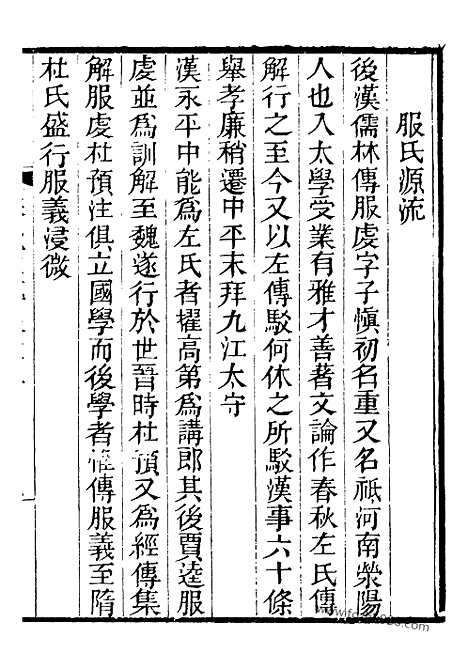 服氏源流
後漢儒林傳服虔字子愼初名重又名祗河南滎陽
人也入太學受業有雅才善著文論作春秋左氏傳
解行之至今又以左傳駁何休之所駁漢事六十條
舉孝廉稍遷中平末拜九江太守
漢永平中能爲左氏者擢高第爲講郎其後賈逵服
虔並爲訓解至魏遂行於世晉時杜預又爲經傳集
解服虔杜預注俱立國學而後學者惟傳服義至隋
杜氏盛行服義浸微